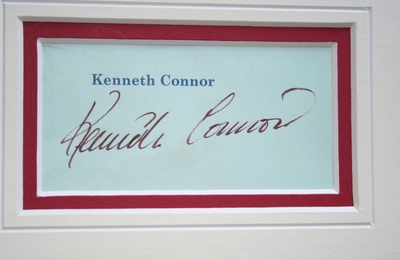 Kenneth Connor
Kenneth Connor